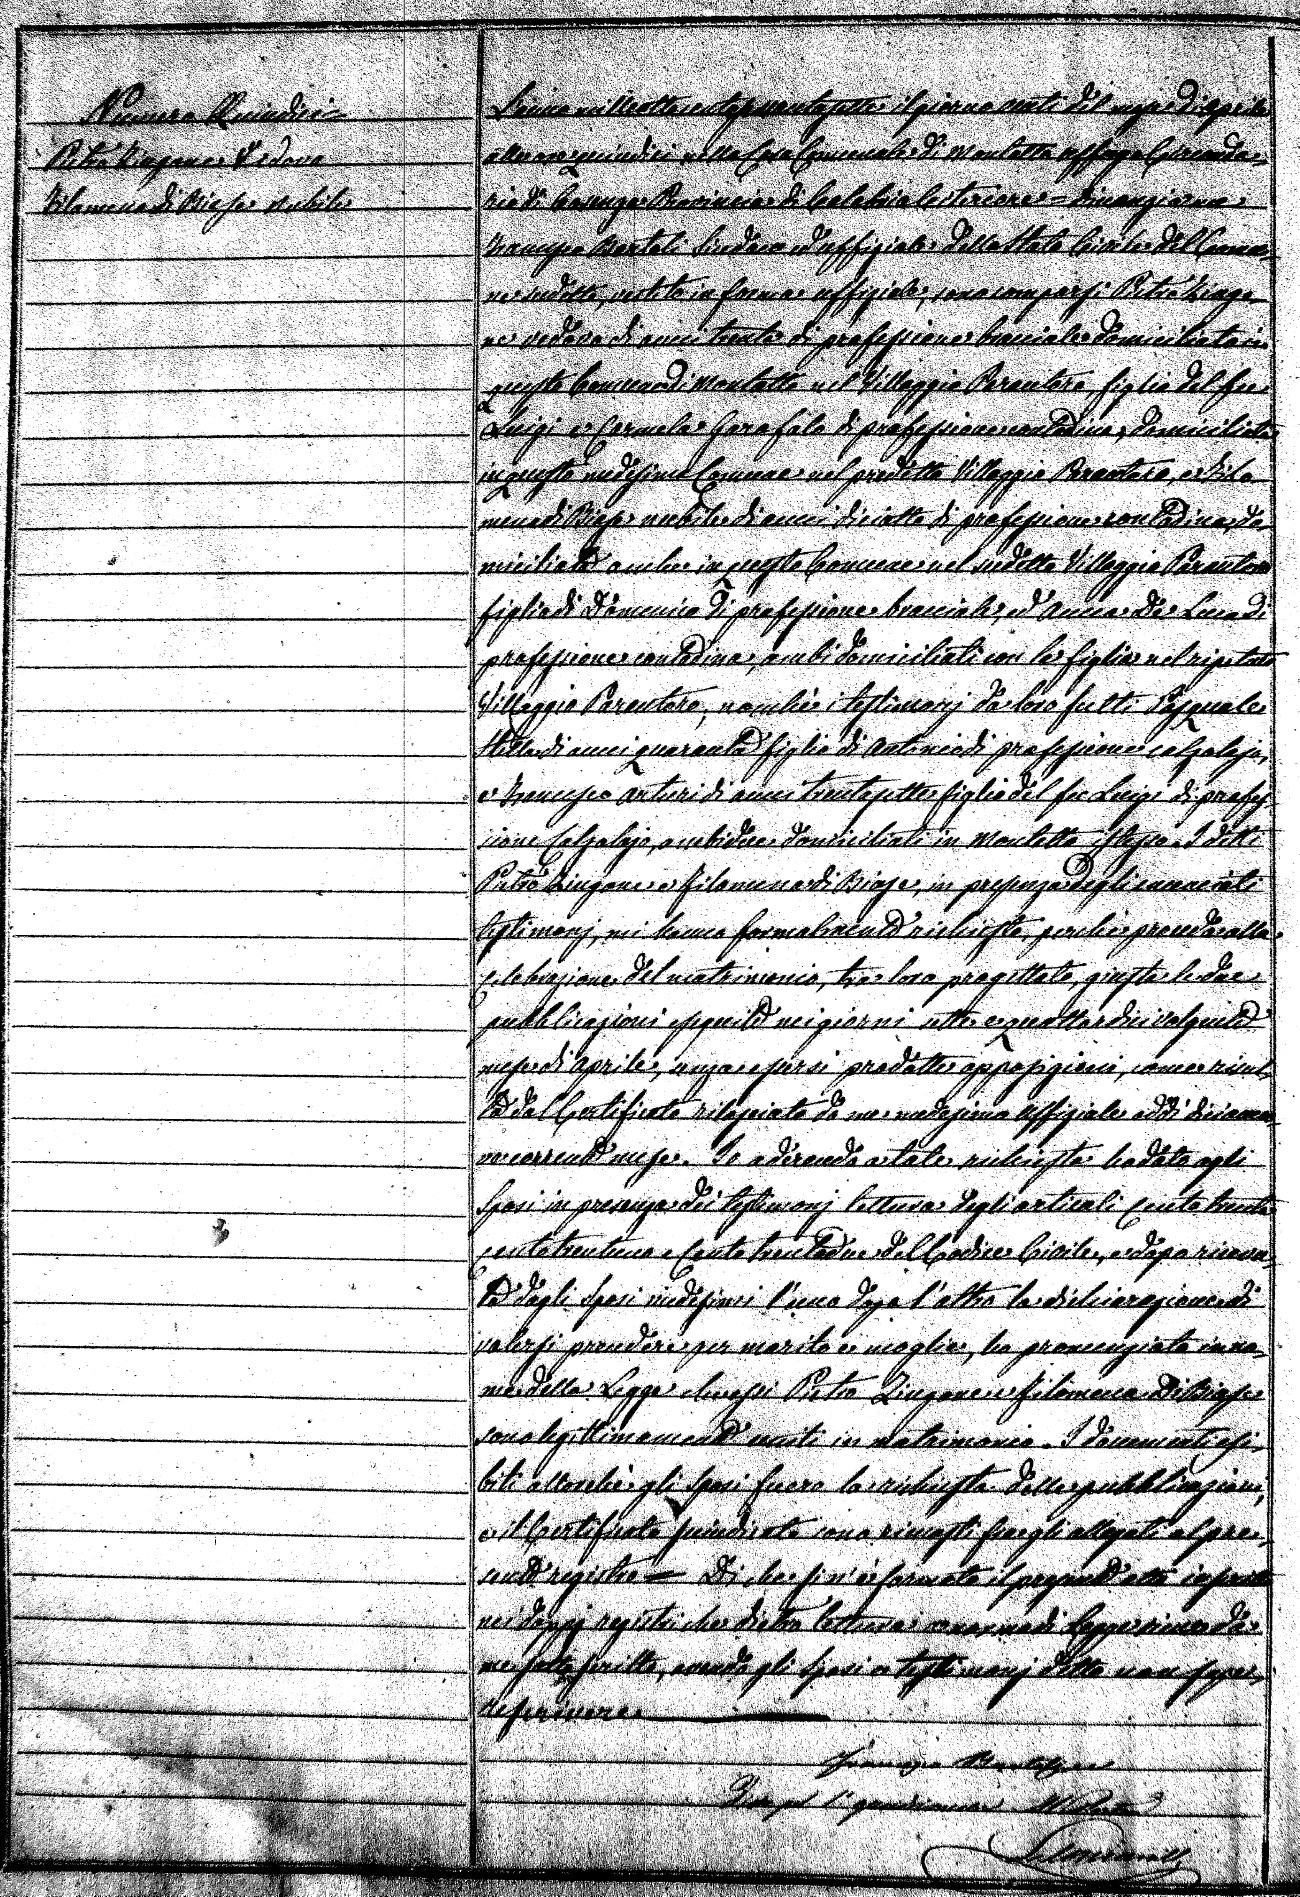 Numero Quindici
Pietro Zingone Vedovo
Filomena di Biase nubile
L'anno milleottocentosettantasette il giorno venti del mese di Aprile
alle ore quindici nella Casa Comunale di Montalto Uffugo Circonda-
rio di Cosenza Provincia di Calabria Citeriore = Dinanzi a me
Francesco Bartoli Sindaco ed uffiziale dello Stato Civile del Comu-
ne sudetto, vestito in forma uffiziale, sono comparsi Pietro Zingo-
ne vedovo di anni trenta di professione bracciale domiciliato in
questo Comune di Montalto nel Villaggio Parantoro, figlio del fu
Luigi e Carmela Garofalo di professione contadina, domiciliata
in questo medesimo Comune nel predetto Villaggio Parantoro, e Filo
mena di Biase nubile di anni diciotto di professione contadina, do
miciliata anche in questo Comune nel sudetto Villaggio Parantoro
figlia di Domenico di professione bracciale, ed Anna De Luca di
professione contadina, ambi domiciliati con la figlia nel ripetuto
Villaggio Parantoro, nonché i testimonj da loro scelti Pasquale
Stella di anni quaranta figlio di Antonio di professione calzolajo,
e Francesco Arturi di anni trentasette figlio del fu Luigi di profes-
sione Calzolajo, ambidue domiciliati in Montalto istesso. I detti
Pietro Zingone e Filomena di Biase, in presenza degli enunciati
testimonj, mi hanno formalmente richiesto, perché proceda alla
celebrazione del matrimonio, tra loro progettato, giusta le due
pubblicazioni eseguite nei giorni sette e quattordici volgente
mese di Aprile, senza essersi prodotte opposizioni, come risul-
ta dal Certificato rilasciato da me medesimo uffiziale addì dicianno
ve corrente mese. Io aderendo a tale richiesta ho dato agli
Sposi in presenza dei testimonj lettura degli articoli Cento trenta
cento trentuno e Cento trentadue del Codice Civile, e dopo ricevu-
ta dagli Sposi medesimi l'uno dopo l'altro la dichiarazione di
volersi prendere per marito e moglie, ho pronunziato in no-
me della Legge che essi Pietro Zingone e Filomena Di Biase
sono legittimamente uniti in matrimonio. I documenti esi-
biti allorché gli Sposi fecero la richiesta delle pubblicazioni,
e il Certificato suindicato sono rimasti fra gli allegati al pre-
sente registro = Di che si è formato il presente atto inscritto
nei doppj registri che dietro lettura a norma di Legge viene da
me sottoscritto, avendo gli Sposi e testimonj detto non sape-
re scrivere